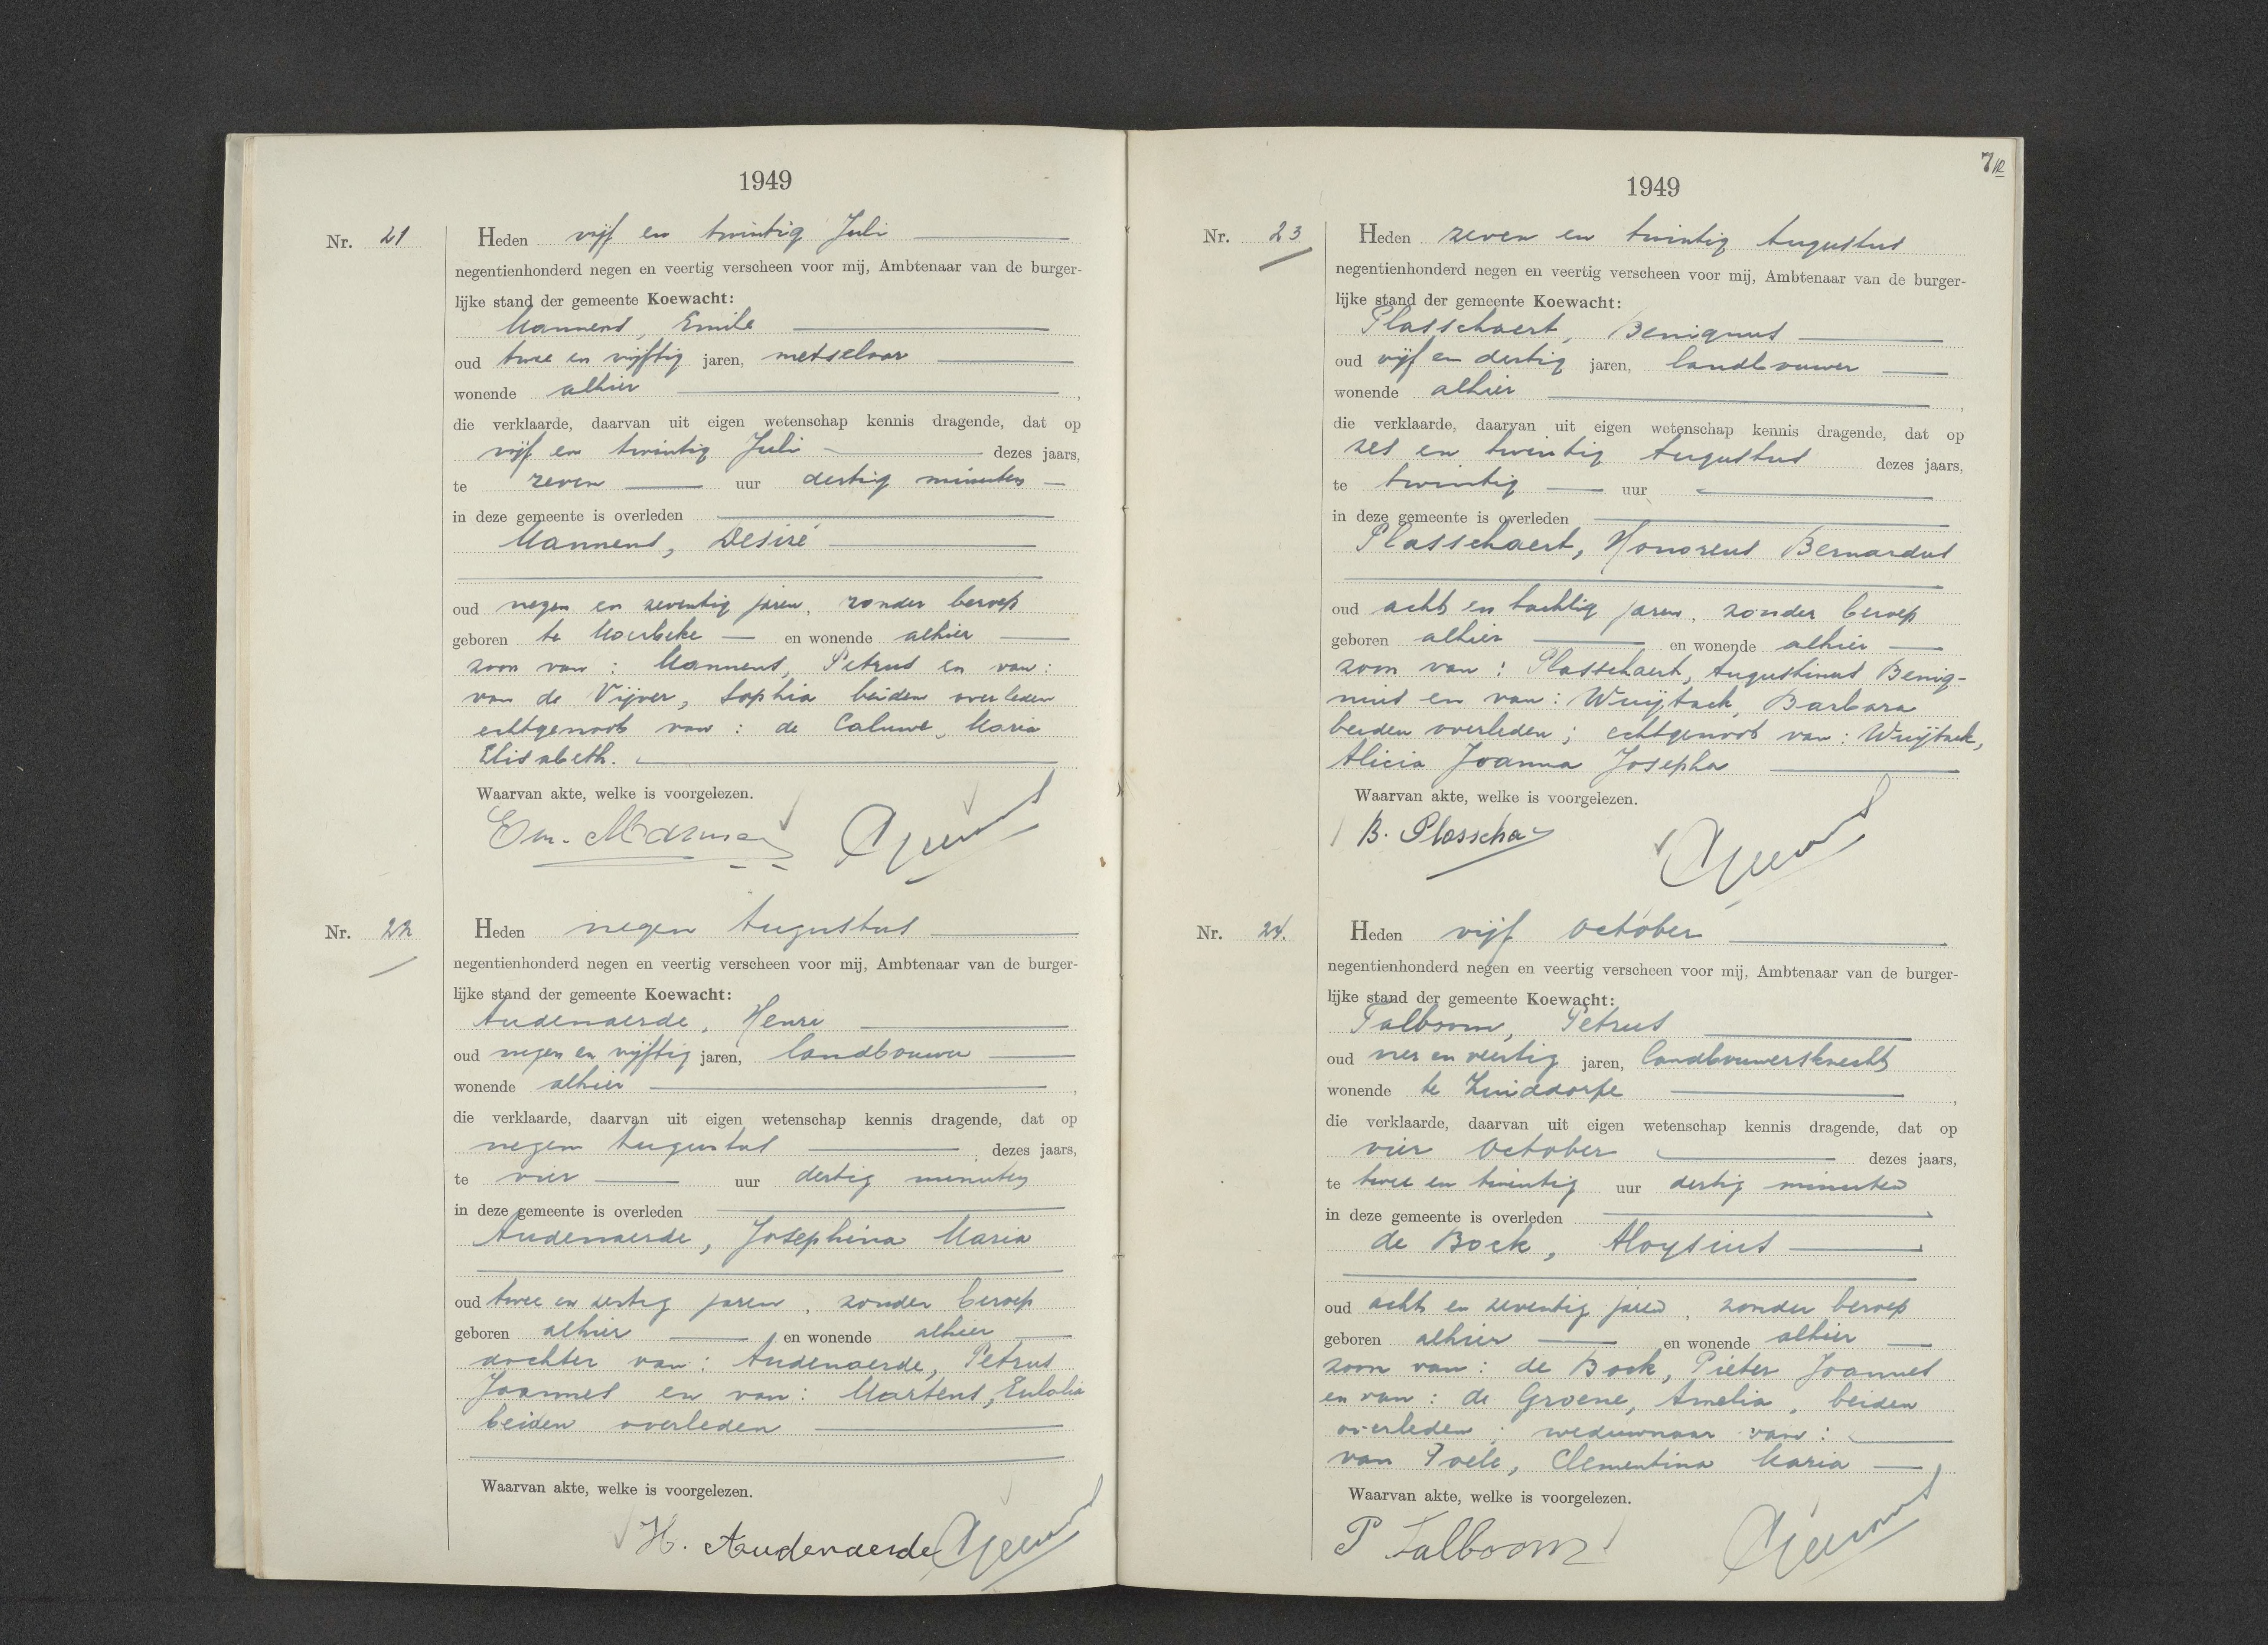 1949
Nr. 21
Heden vijf en twintig Juli
negentienhonderd negen en veertig verscheen voor mij, Ambtenaar van de burger-
lijke stand der gemeente Koewacht:
Mannens, Emile
oud twee en vijftig jaren, metselaar
wonende alhier ,
die verklaarde, daarvan uit eigen wetenschap kennis dragende, dat op
vijf en twintig Juli dezes jaars,
te zeven uur dertig minuten
in deze gemeente is overleden
Mannens, Desiré
oud negen en zeventig jaren, zonder beroep
geboren te Moerbeke en wonende alhier
zoon van: Mannens, Petrus en van:
van de Vijver, Sophia beiden overleden
echtgenoot van: de Caluwe, Maria
Elisabeth.
Waarvan akte, welke is voorgelezen.
Em.
Nr. 22
Heden negen Augustus
negentienhonderd negen en veertig verscheen voor mij, Ambtenaar van de burger-
lijke stand der gemeente Koewacht:
Audenaerde, Henri
oud negen en vijftig jaren, landbouwer
wonende alhier ,
die verklaarde, daarvan uit eigen wetenschap kennis dragende, dat op
negen Augustus dezes jaars,
te vier uur dertig minuten
in deze gemeente is overleden
Audenaerde, Josephina Maria
oud twee en zestig jaren, zonder beroep
geboren alhier en wonende alhier
dochter van: Audenaerde, Petrus
Joannes en van: Martens, Eulalia
beiden overleden
Waarvan akte, welke is voorgelezen.
H. Audenaerde
7
1949
Nr. 23
Heden zeven en twintig Augustus
negentienhonderd negen en veertig verscheen voor mij, Ambtenaar van de burger-
lijke stand der gemeente Koewacht:
Plasschaert, Benignus
oud vijf en dertig jaren, landbouwer
wonende alhier ,
die verklaarde, daarvan uit eigen wetenschap kennis dragende, dat op
zes en twintig Augustus dezes jaars,
te twintig uur
in deze gemeente is overleden
Plasschaert, Honoreus Bernardus
oud acht en tachtig jaren, zonder beroep
geboren alhier en wonende alhier
zoon van: Plasschaert, Augustinus Benig-
nus en van: Wuijtack, Barbara
beiden overleden; echtgenoot van: Wuijtack,
Alicia Joanna Josepha
Waarvan akte, welke is voorgelezen.
B. Plasscha
Nr. 24.
Heden vijf October
negentienhonderd negen en veertig verscheen voor mij, Ambtenaar van de burger-
lijke stand der gemeente Koewacht:
Talboom, Petrus
oud vier en veertig jaren, landbouwersknecht
wonende te Zuiddorpe ,
die verklaarde, daarvan uit eigen wetenschap kennis dragende, dat op
vier October dezes jaars,
te twee en twintig uur dertig minuten
in deze gemeente is overleden
de Bock, Aloysius
oud acht en zeventig jaren, zonder beroep
geboren alhier en wonende alhier
zoon van: de Bock, Pieter Joannes
en van: de Groene, Amelia, beiden
overleden; weduwnaar van:
van Poele, Clementina Maria
Waarvan akte, welke is voorgelezen.
P Talboom